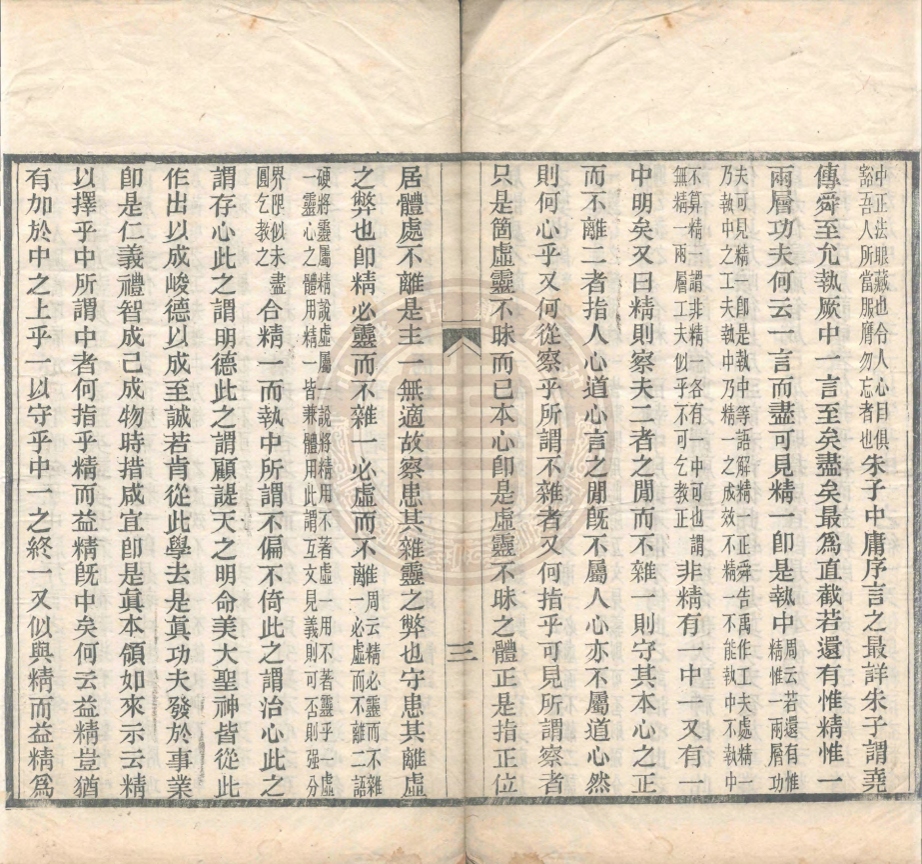 中正法眼藏也令人心目俱
豁吾人所當服膺勿忘者也
朱子中庸序言之最詳朱子謂堯
傳舜至允執厥中一言至矣盡矣最爲直截若還有惟精惟一
兩層功夫何云一言而盡可見精一卽是執中
周云若還有惟
精惟一兩層功
夫可見精一卽是執中等語解精一正舜告禹作工夫處精一
乃執中之工夫執中乃精一之成效不精一不能執中不執中
不算精一謂非精一各有一中可也謂
無精一兩層工夫似乎不可乞教正
非精有一中一又有一
中明矣又曰精則察夫二者之閒而不雜一則守其本心之正
而不離二者指人心道心言之閒旣不屬人心亦不屬道心然
則何心乎又何從察乎所謂不雜者又何指乎可見所謂察者
只是箇虛靈不昧而已本心卽是虛靈不昧之體正是指正位
三
居體處不離是主一無適故察患其雜靈之弊也守患其離虛
之弊也卽精必靈而不雜一必虛而不離
周云精必靈而不雜
一必虛而不離二語
硬將靈屬精說虛屬一說將精用不著虛一用不著靈乎一虛
一靈心之體用精一皆兼體用此謂互文見義則可否則强分
界限似未盡
圓乞教之
合精一而執中所謂不偏不倚此之謂治心此之
謂存心此之謂明德此之謂顧諟天之明命美大聖神皆從此
作出以成峻德以成至誠若肯從此學去是眞功夫發於事業
卽是仁義禮智成己成物時措咸宜卽是眞本領如來示云精
以擇乎中所謂中者何指乎精而益精旣中矣何云益精豈猶
有加於中之上乎一以守乎中一之終一又似與精而益精爲